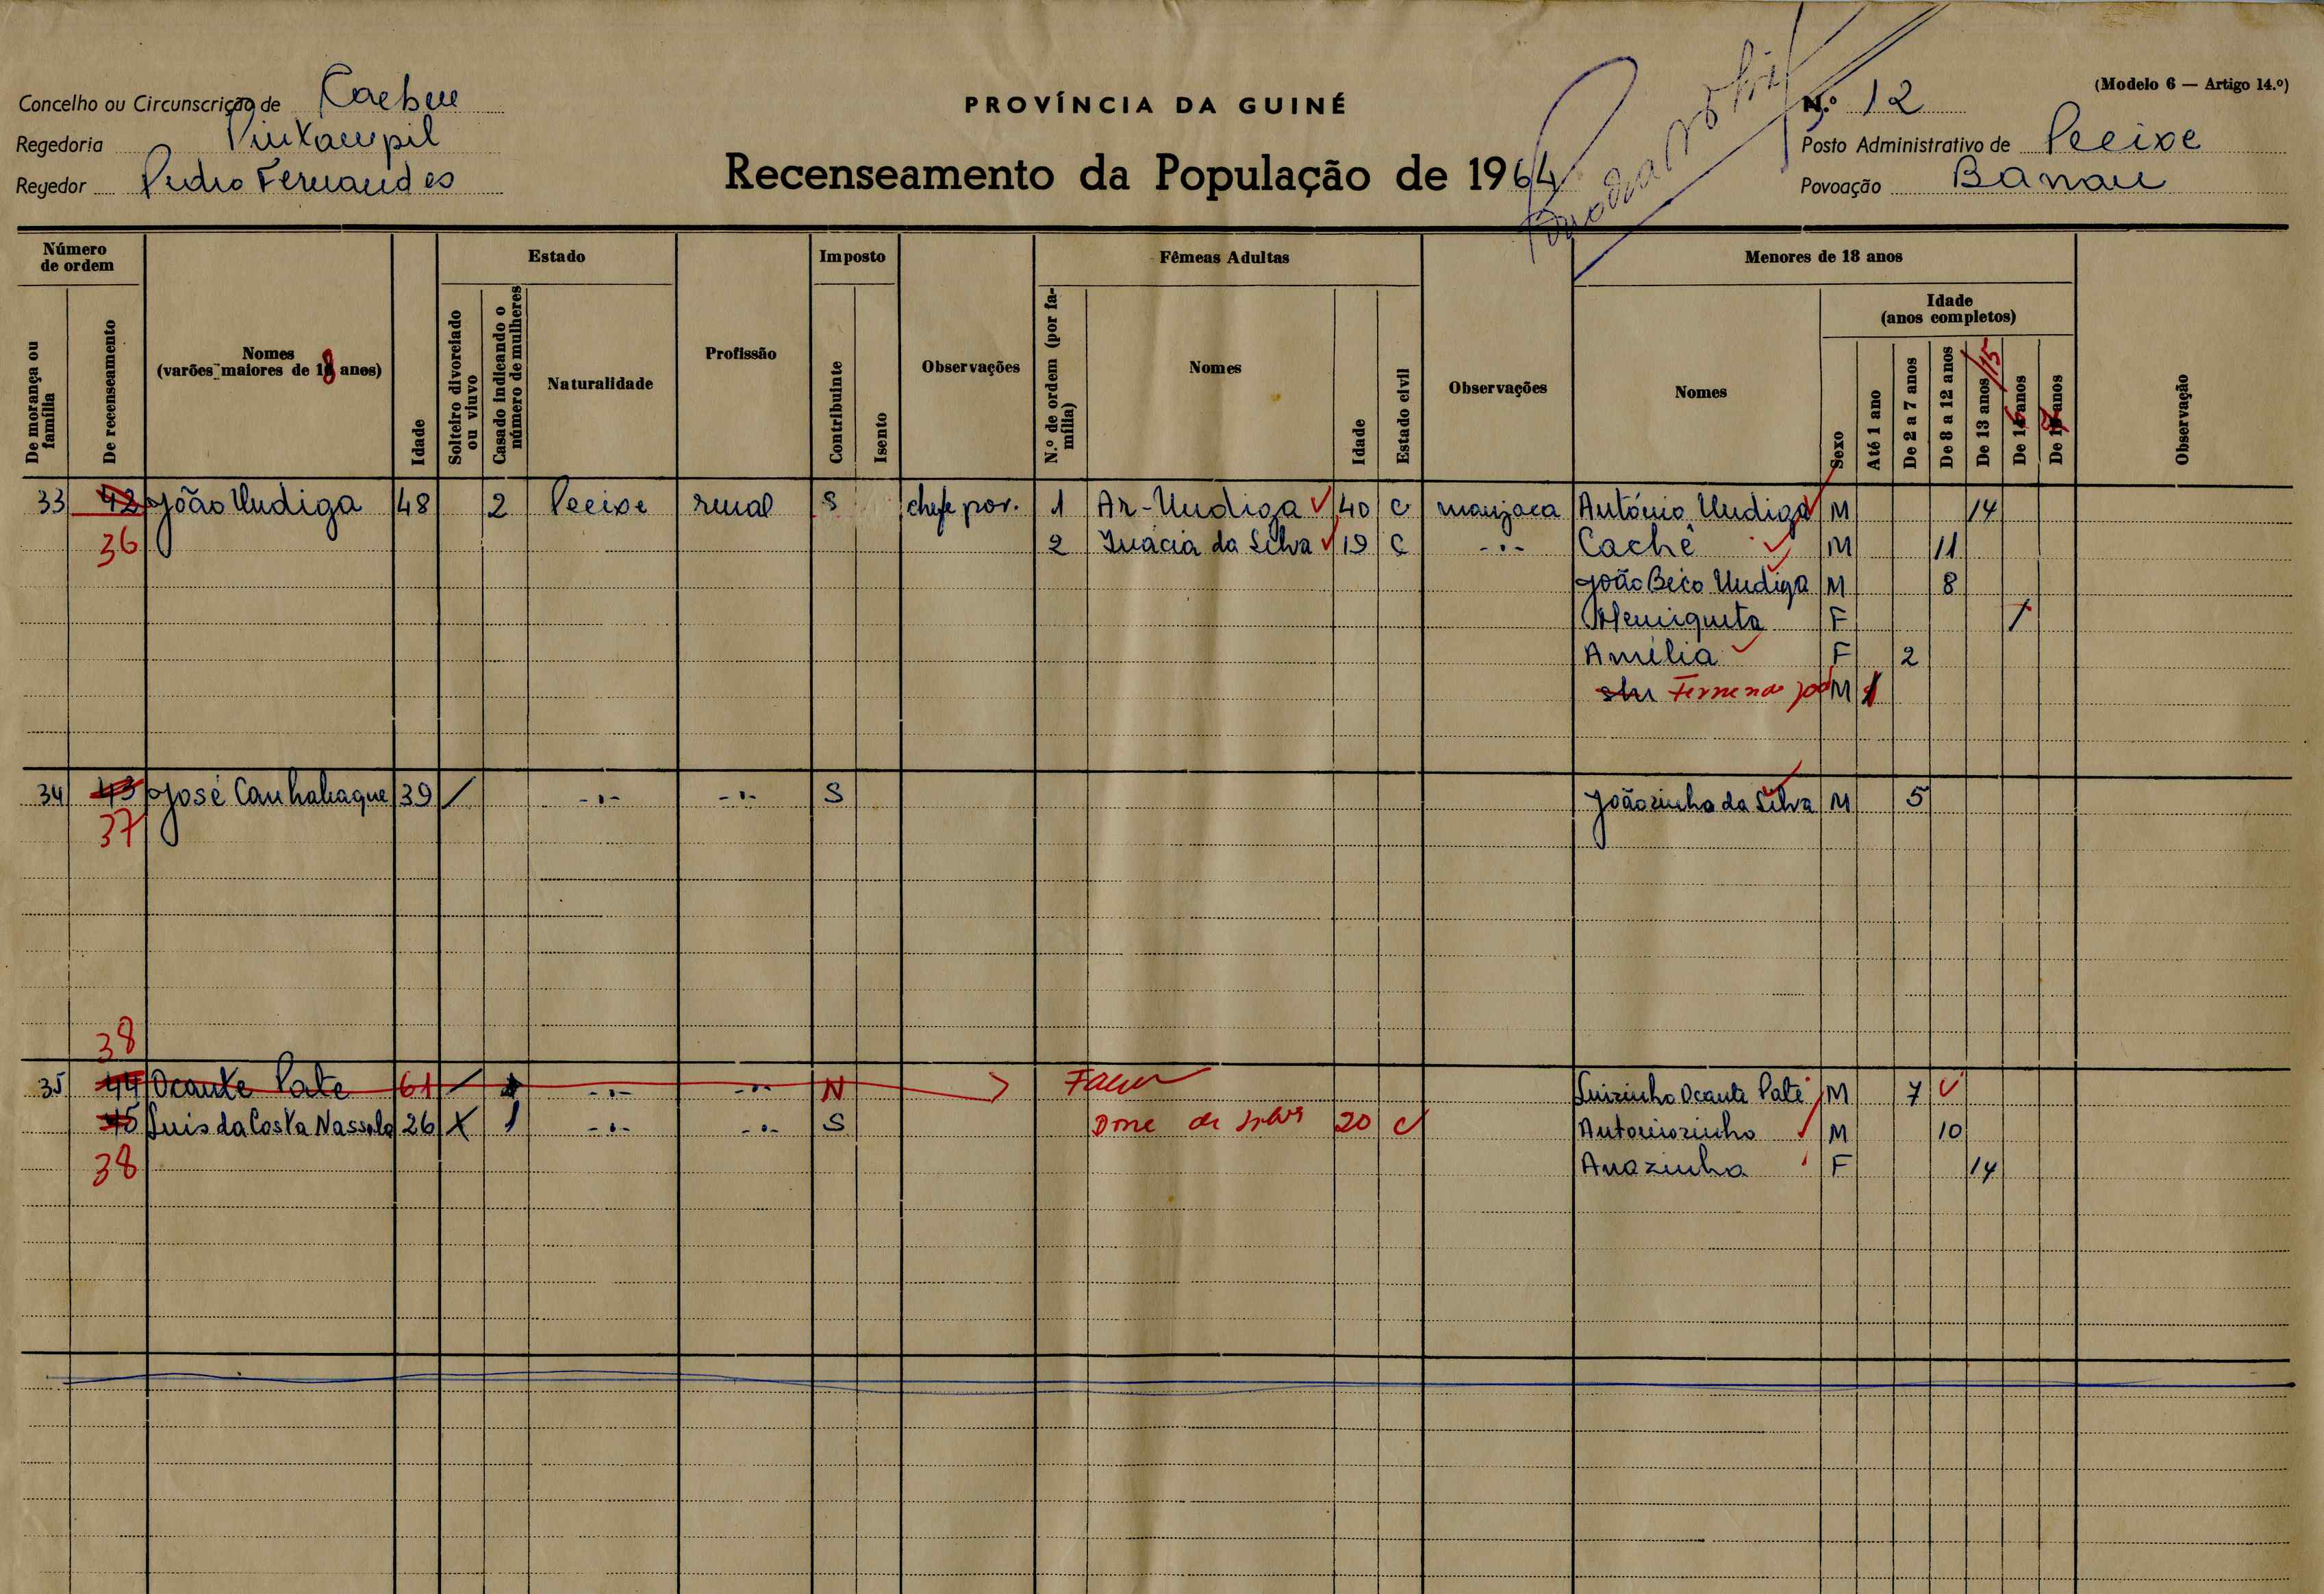 (Modelo 6 — Artigo 14.º)
Concelho ou Circunscrição de Caebue
PROVÍNCIA DA GUINÉ
N.º 12
Regedoria Pintampil
Posto Administrativo de Pecixe
Regedor Pedro Fernandes
Recenseamento da População de 1964
Povoação Banau
Número de ordem
Estado
Imposto
Fêmeas Adultas
Menores de 18 anos
De morança ou família
De recenseamento
Nomes (varões maiores de 18 anos)
Idade
Solteiro divorciado ou viuvo
Casado indicando o número de mulheres
Naturalidade
Profissão
Contribuinte
Isento
Observações
N.º de ordem (por família)
Nomes
Idade
Estado civil
Observações
Nomes
Sexo
Idade (anos completos)
Até 1 ano
De 2 a 7 anos
De 8 a 12 anos
De 13 anos /15
De 16 anos
De 17 anos
Observação
33 42 João Undiga 48 2 Pecixe rural S chefe pov. 1 Ar-Undiga 40 C manjaca António Undiga M 14
36 2 Inácia da Silva 19 C -"- Caché M 11
João Beco Undiga M 8
Henriqueta F /
Amélia F 2
Fernenas M
34 43 José Canhabaque 39 / -"- -"- S Joãozinho da Silva M 5
37
38
35 44 Ocante Pate 61 / -"- -"- N Luizinho Ocante Paté M 7
45 Luis da Costa Nassala 26 X 1 -"- -"- S 20 C Antoniozinho M 10
38 Anazinha F 14